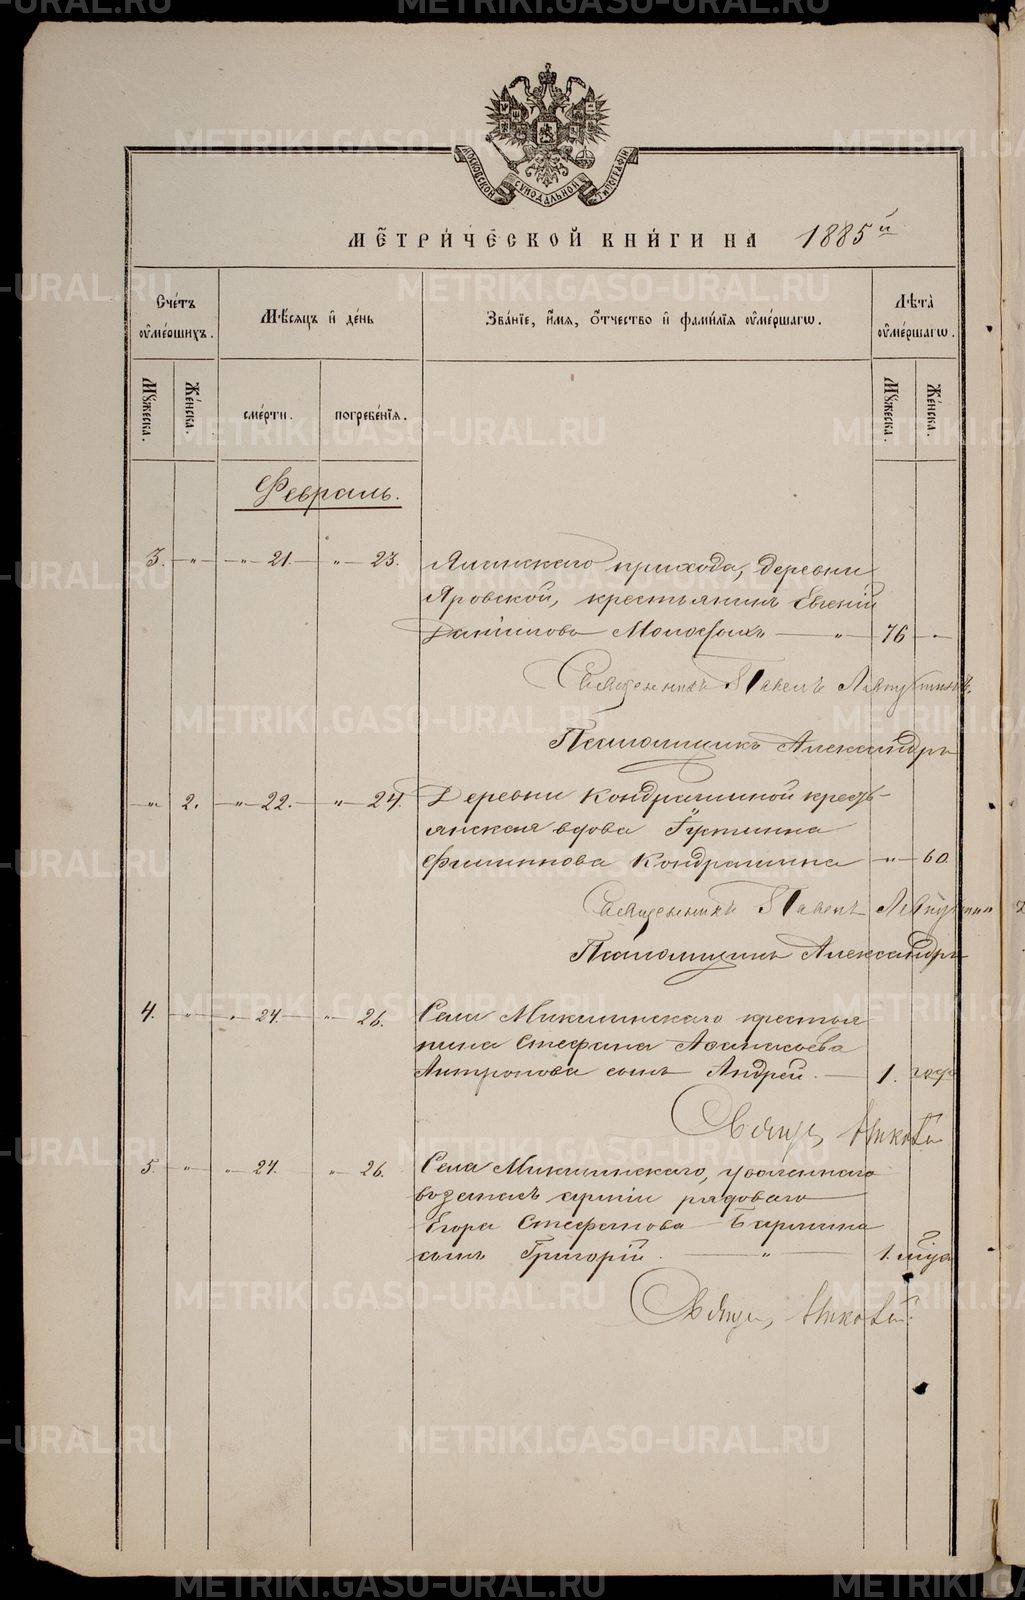 МОСКОВСКОЙ СѴНОДАЛЬНОЙ ТИПОГРАФІИ
МЕТРИЧЕСКОЙ КНИГИ НА 1885й
Счетъ оумершихъ.
Мѣсяцъ и день
Званіе, имя, отчество и фамилія оумершагѡ.
Лѣта оумершагѡ.
Мужеска.
Женска.
смерти.
погребенія.
Мужеска.
Женска.
Февраль.
3. " " 21. " 23. прихода, деревни
Яровской, крестьянинъ Евгеній
Данилова 76 "
Священникъ Павелъ
Псаломщикъ Александръ
" 2. " 22. " 24. Деревни Кондрашиной кресть-
янская вдова
Филиппова Кондрашина " 60.
Священникъ Павелъ
Псаломщикъ Александръ
4. " " 24. " 26. Села Микшинскаго крестья
нина Стефана Аѳанасьева
Антропова сынъ Андрей. 1. года
Священ. Николай
5. " " 24. " 26. Села Микшинскаго, уволеннаго
въ запасъ арміи рядоваго
Егора Стефанова
сынъ Григорій. " 1.
Священ. Николай
METRIKI.GASO-URAL.RU